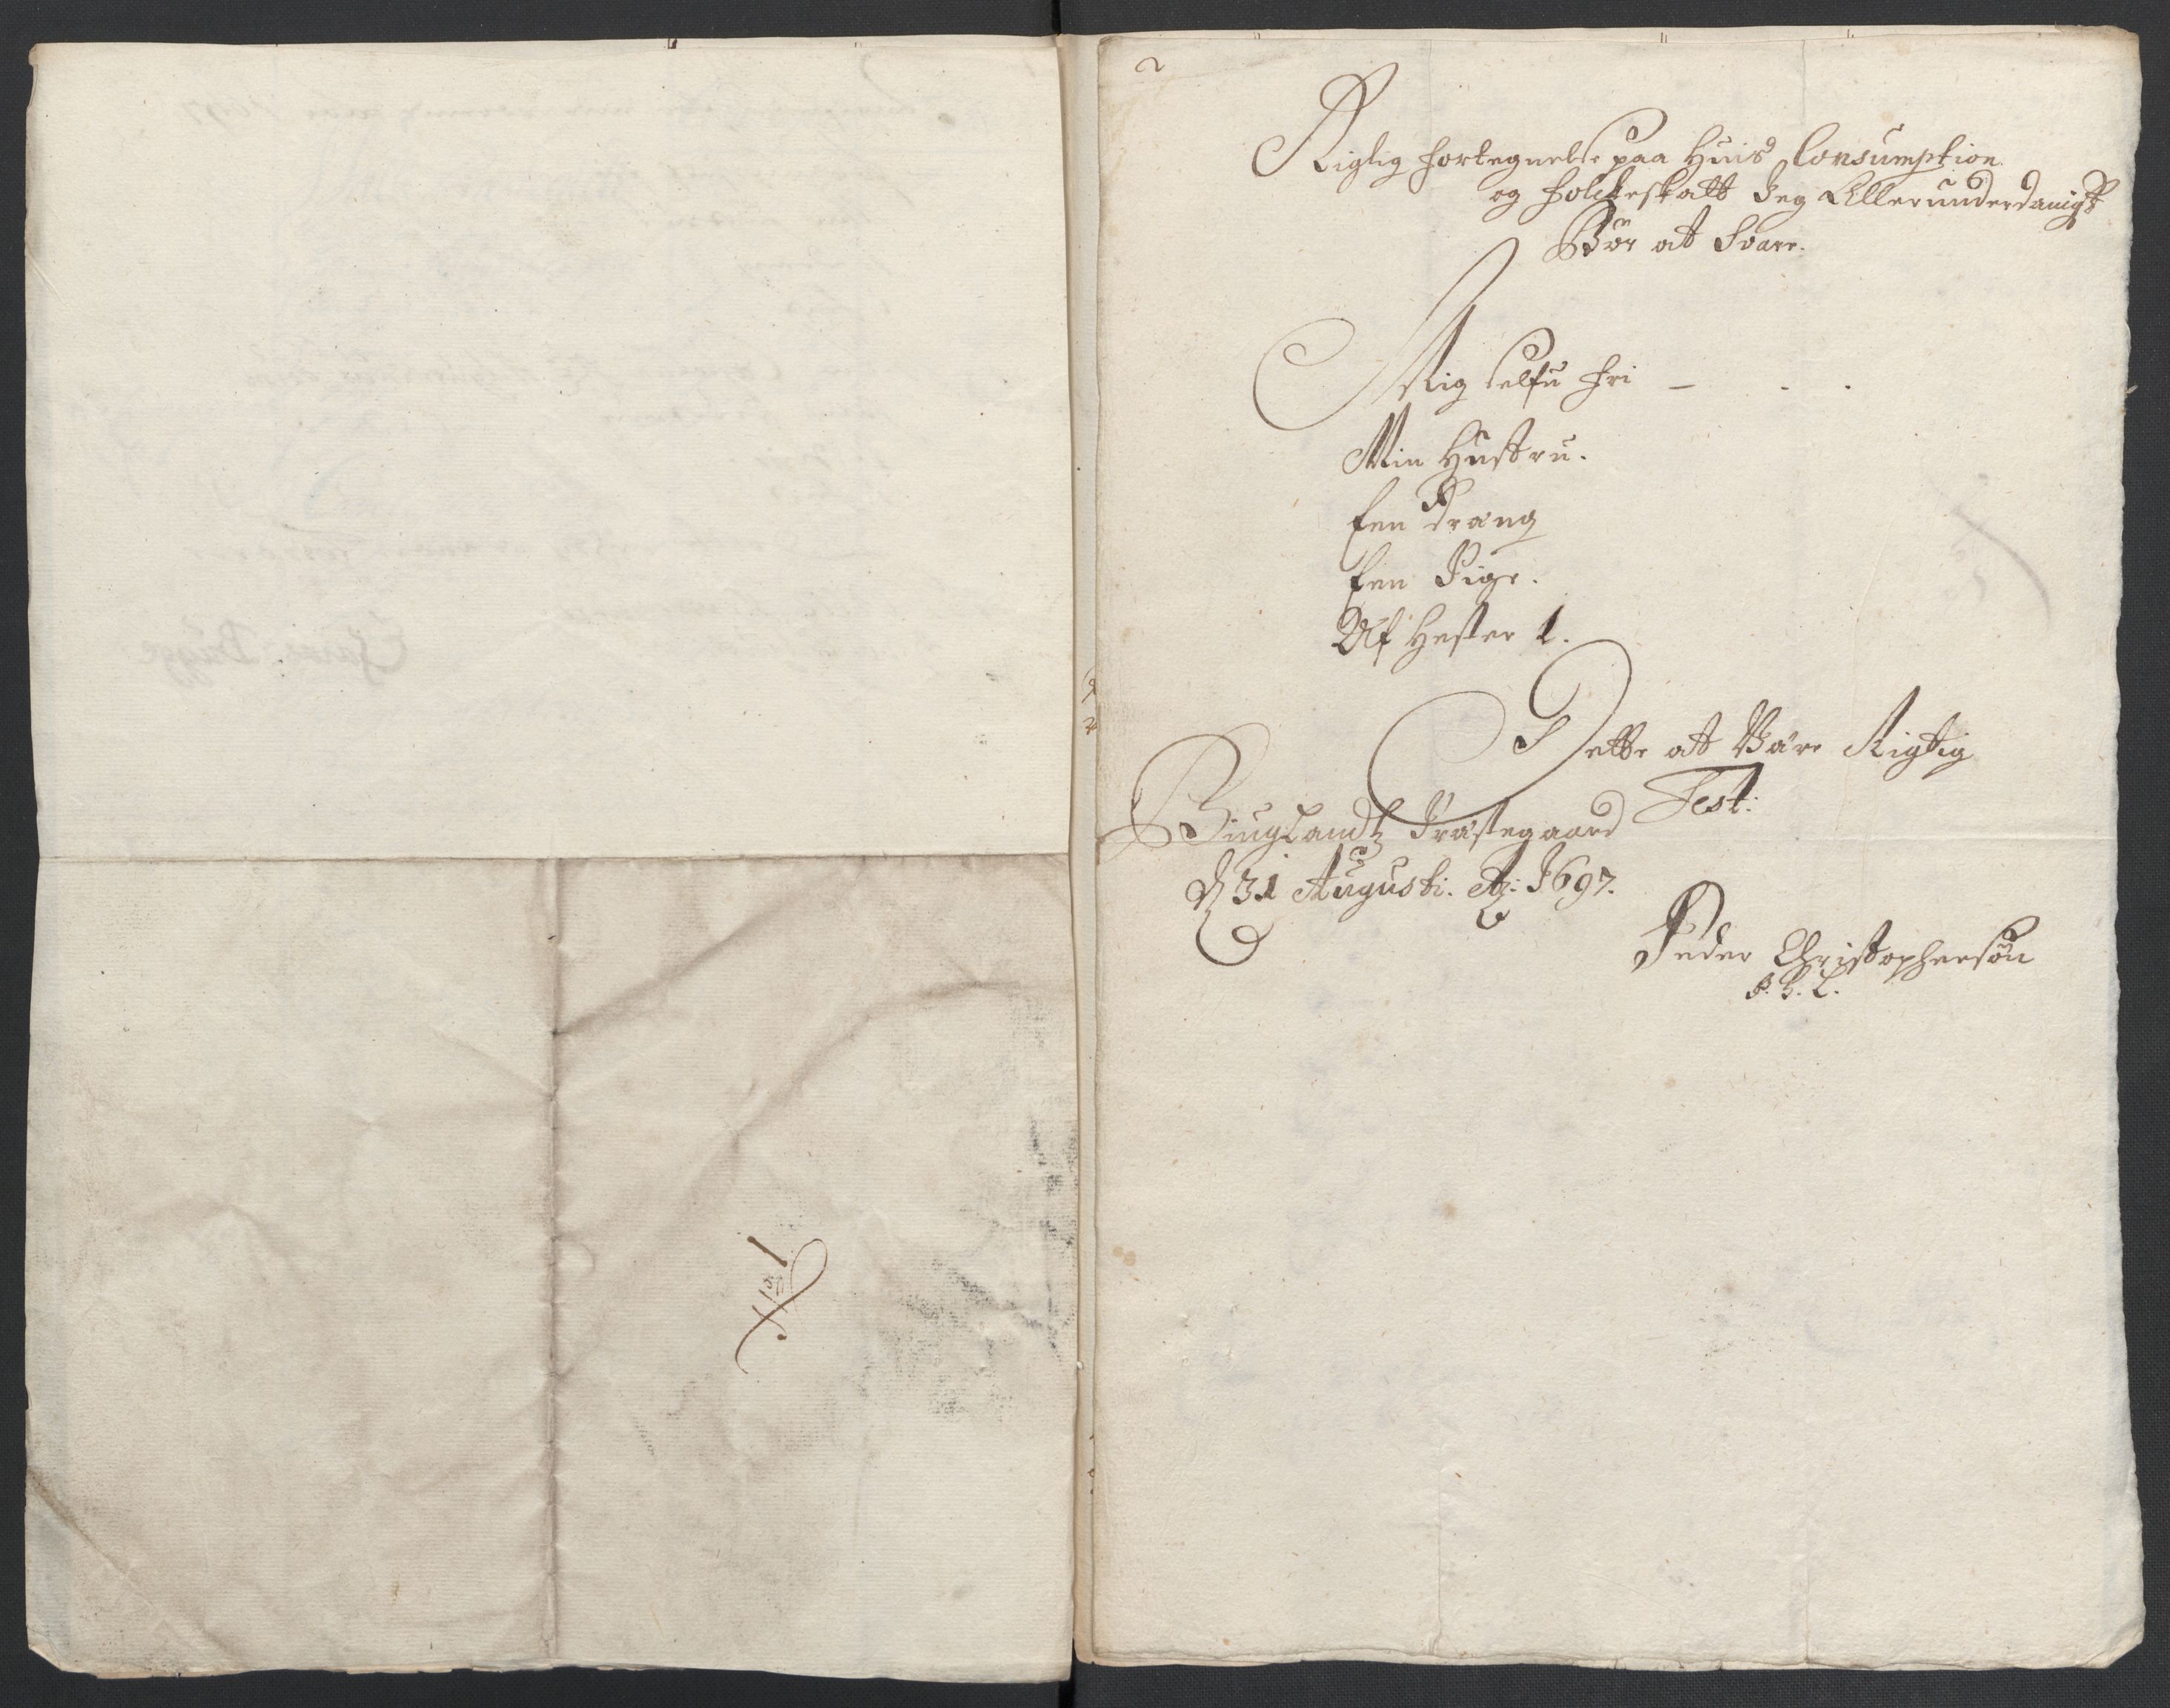 2
Rigtig fortegnelse paa huis Consumption
og folckeskatt Jeg Allerunderdanigst
Bör at Svare.
Mig selfu fri –
Min Hustru.
Een Dräng
Een Pige.
Af Hester 1.
Dette at Väre Rigtig
Test:
Biuglandtz Præstegaard
d 31 Augusti. Ao: 1697.
Peder Christophersøn